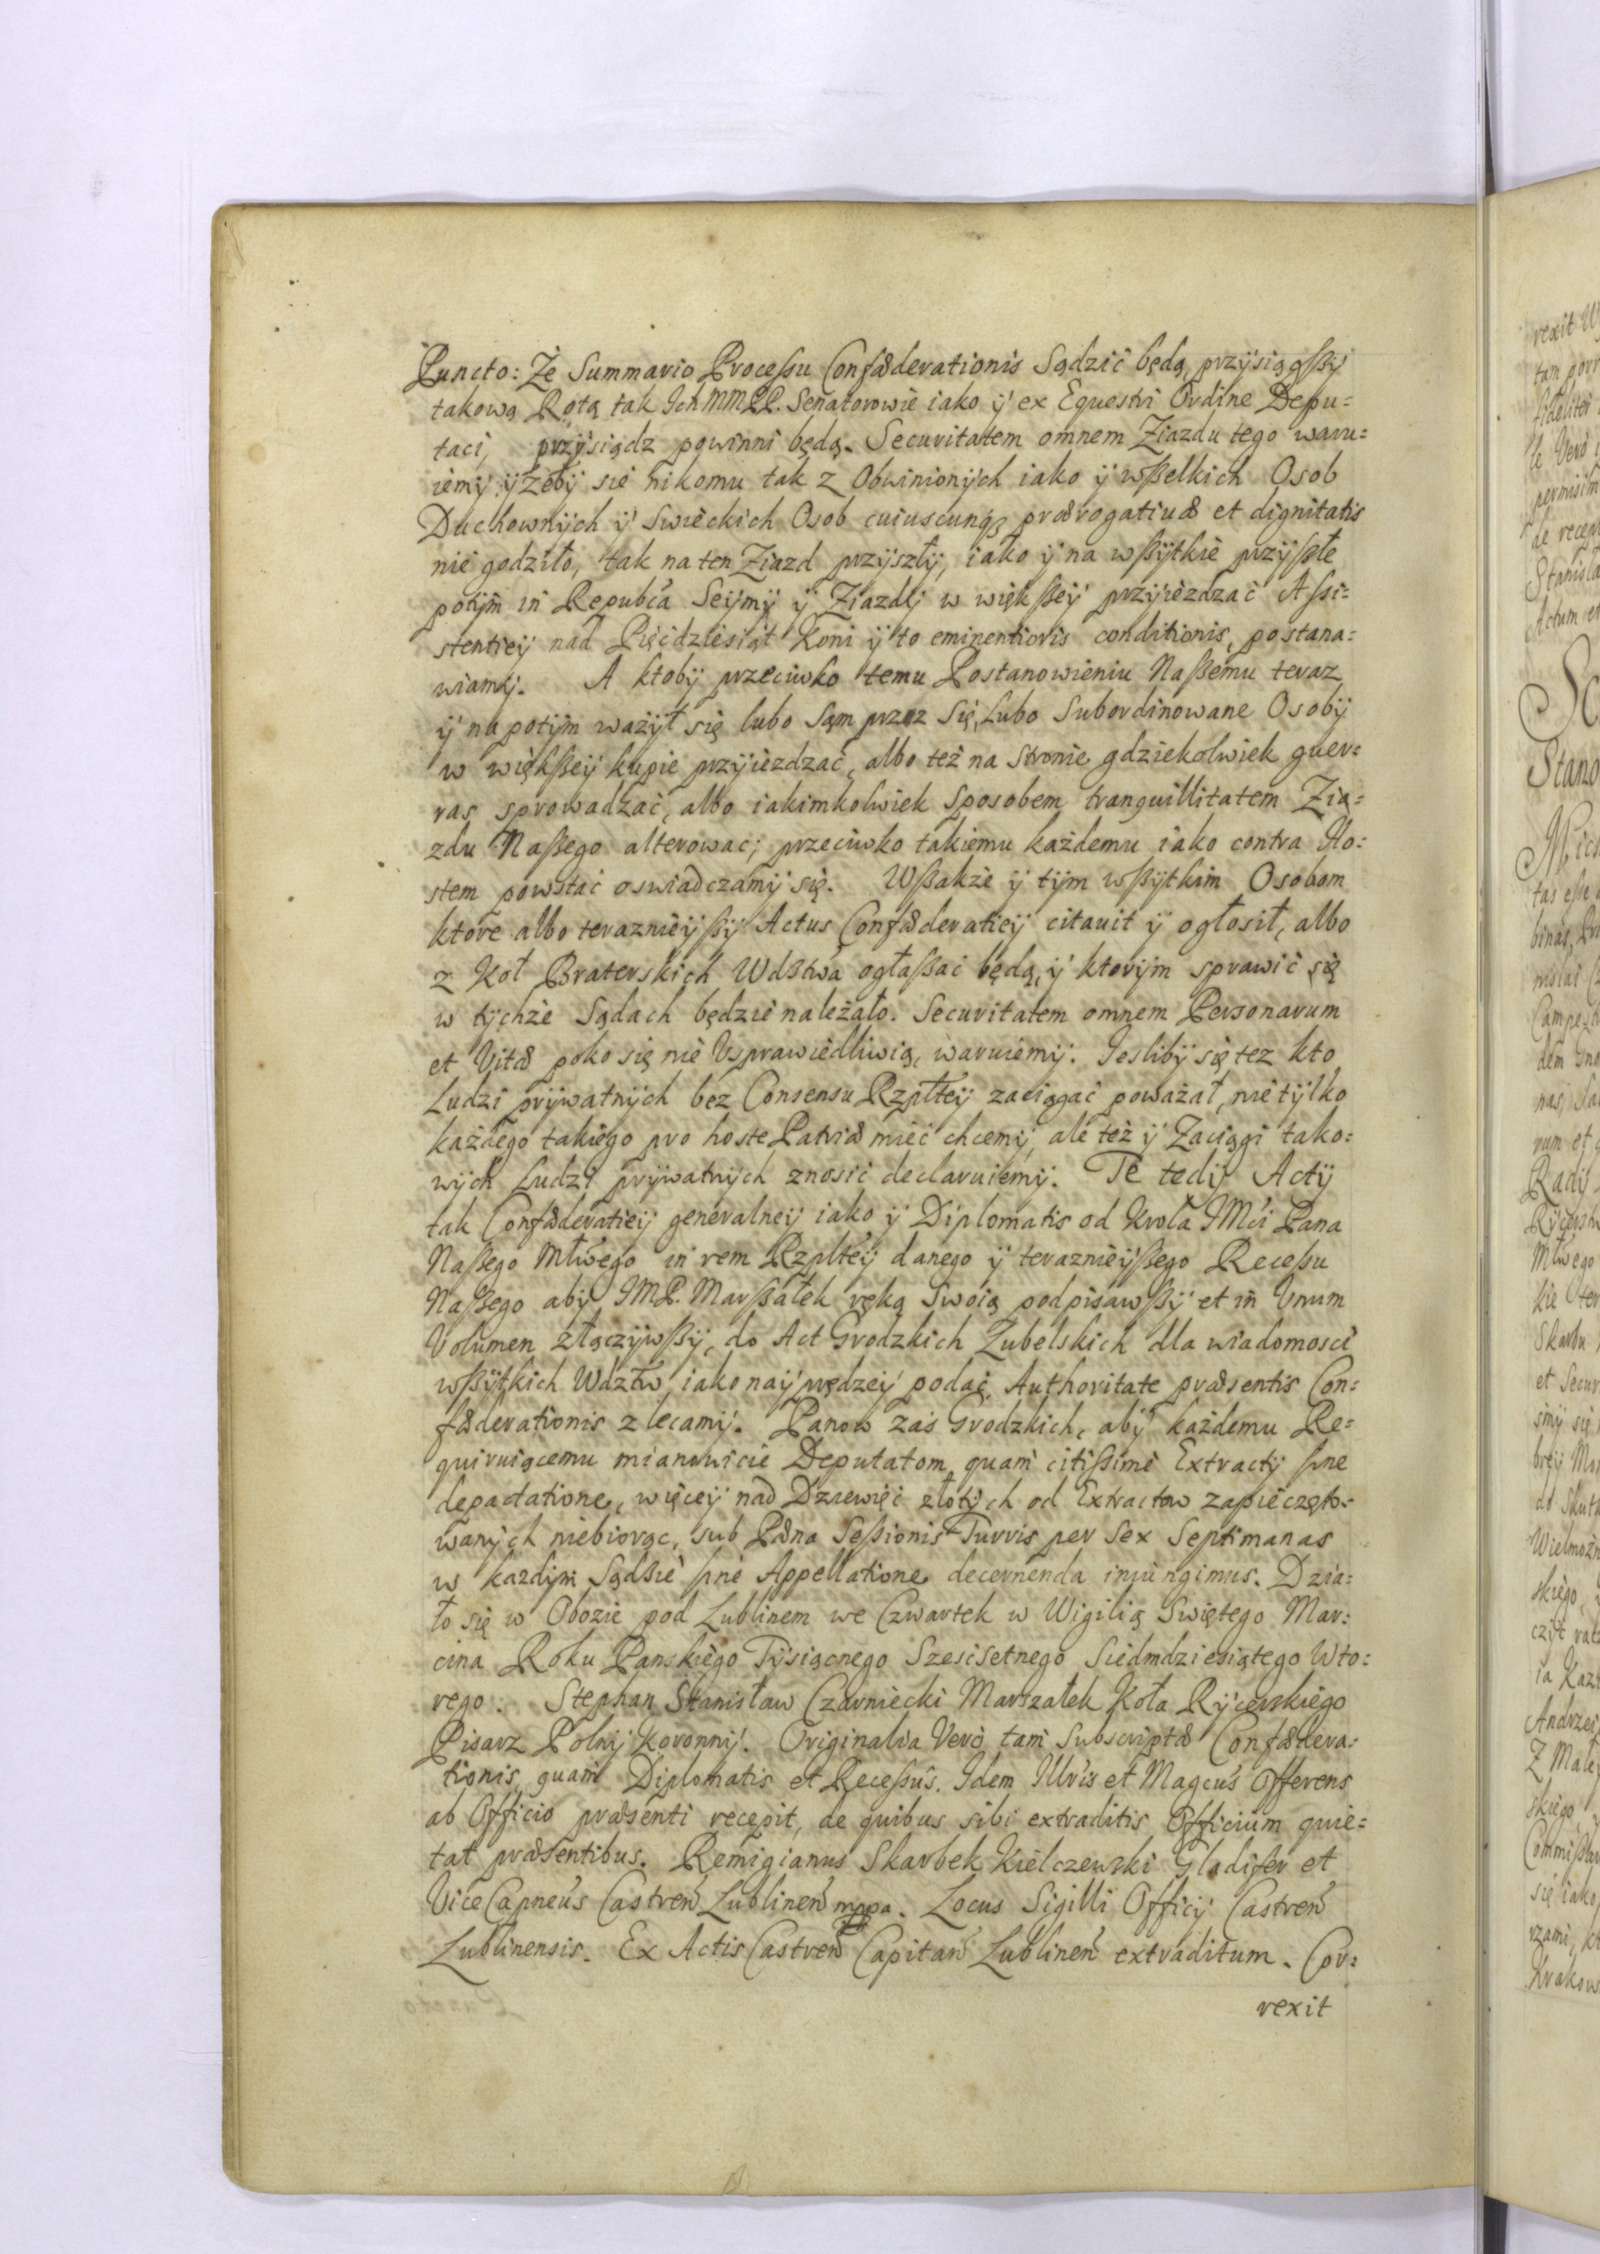 Puncto: Że Summario Processu Confæderationis Sądzić będą, przysiągßy
takową Rotą tak Ich MMPP. Senatorowie iako ÿ ex Equestri Ordine Depu=
taci, przÿsiądz powinni będą. Securitatem omnem Ziazdu tego waru=
iemÿ ÿ żebÿ sie nikomu tak z Obwinionÿch iako ÿ wßelkich Osob
Duchownÿch ÿ Swieckich Osob cuiuscunqȝ prærogatiuæ et dignitatis
nie godziło, tak na ten Ziazd przÿszłÿ, iako ÿ na wßÿtkie przÿßłe
potÿm in Repubca Seÿmÿ ÿ Ziazdÿ w większeÿ przÿiezdzać Assi=
stentieÿ nad Pięćdziesiąt Koni ÿ to eminentioris conditionis, postana=
wiamÿ. A ktobÿ przeciwko temu Postanowieniu Naßemu teraz
ÿ na potÿm ważÿł się lubo sąm przez się, Lubo Subordinowane Osobÿ
w większeÿ kupie przÿiezdzać, albo też na stronie gdziekolwiek guer=
ras sprowadzać, albo iakimkolwiek sposobem tranquillitatem Zia=
zdu Naßego alterowac; przeciwko takiemu każdemu iako contra Ho=
stem powstać oswiadczamÿ się. Wßakże ÿ tÿm wßÿtkim Osobom
ktore albo teraznieÿßÿ Actus Confæderatieÿ citauit ÿ ogłosił, albo
z Koł Braterskich Wdztwa ogłaßać będą, ÿ ktorÿm sprawić się
w tÿchże Sądach będzie należało. Securitatem omnem Personarum
et Vitæ poko się nie Usprawiedliwią, waruiemÿ. Ieslibÿ się tez kto
Ludzi prÿwatnÿch bez Consensu Rzpłteÿ zaciągać poważał, nie tÿlko
każdego takiego pro hoste Patriæ mieć chcemÿ, ale też ÿ Zaciągi tako=
wÿch Ludzi prÿwatnÿch znosić declaruiemÿ. Te tedÿ Actÿ
tak Confæderatieÿ generalneÿ iako ÿ Diplomatis od Krola IMci Pana
Naßego Młwego in rem Rzpłteÿ danego ÿ teraznieÿßego Recessu
Naßego abÿ IMP. Marßałek ręką Swoią podpisawßÿ et in Unum
Volumen złączÿwßÿ, do Act Grodzkich Lubelskich dla wiadomosci
wßÿtkich Wdztw iako naÿprędzeÿ podać, Authoritate præsentis Con=
fæderationis zlecamÿ. Panow zaś Grodzkich, abÿ każdemu Re=
quiruiącemu mianowicie Deputatom quam citissimè Extractÿ sine
depactatione, więceÿ nad Dziewięć złotÿch od Extractow zapieczęto=
wanÿch niebiorąc, sub Pæna Sessionis Turris per Sex Septimanas
w kazdÿm Sądzie sine Appellatione decernenda iniungimus. Dzia=
ło się w Obozie pod Lublinem we Czwartek w Wigilią Swiętego Mar=
cina Roku Panskiego Tÿsiącnego Szescsetnego Siedmdziesiątego Wto=
rego. Stephan Stanisław Czarniecki Marszałek Koła Rÿcerskiego
Pisarz Polnÿ Koronnÿ. Originalia Verò tam Subscriptæ Confædera=
tionis quam Diplomatis et Recessûs. Idem Illris et Magcus Offerens
ab Officio præsenti recepit, de quibus sibi extraditis Officium quie=
tat præsentibus. Remigianus Skarbek Kielczewski Gladifer et
Vice Capneus Castren Lublinen mppa. Locus Sigilli Officÿ Castren
Lublinensis. Ex Actis Castren Capitan Lublinen extraditum. Cor=
rexit